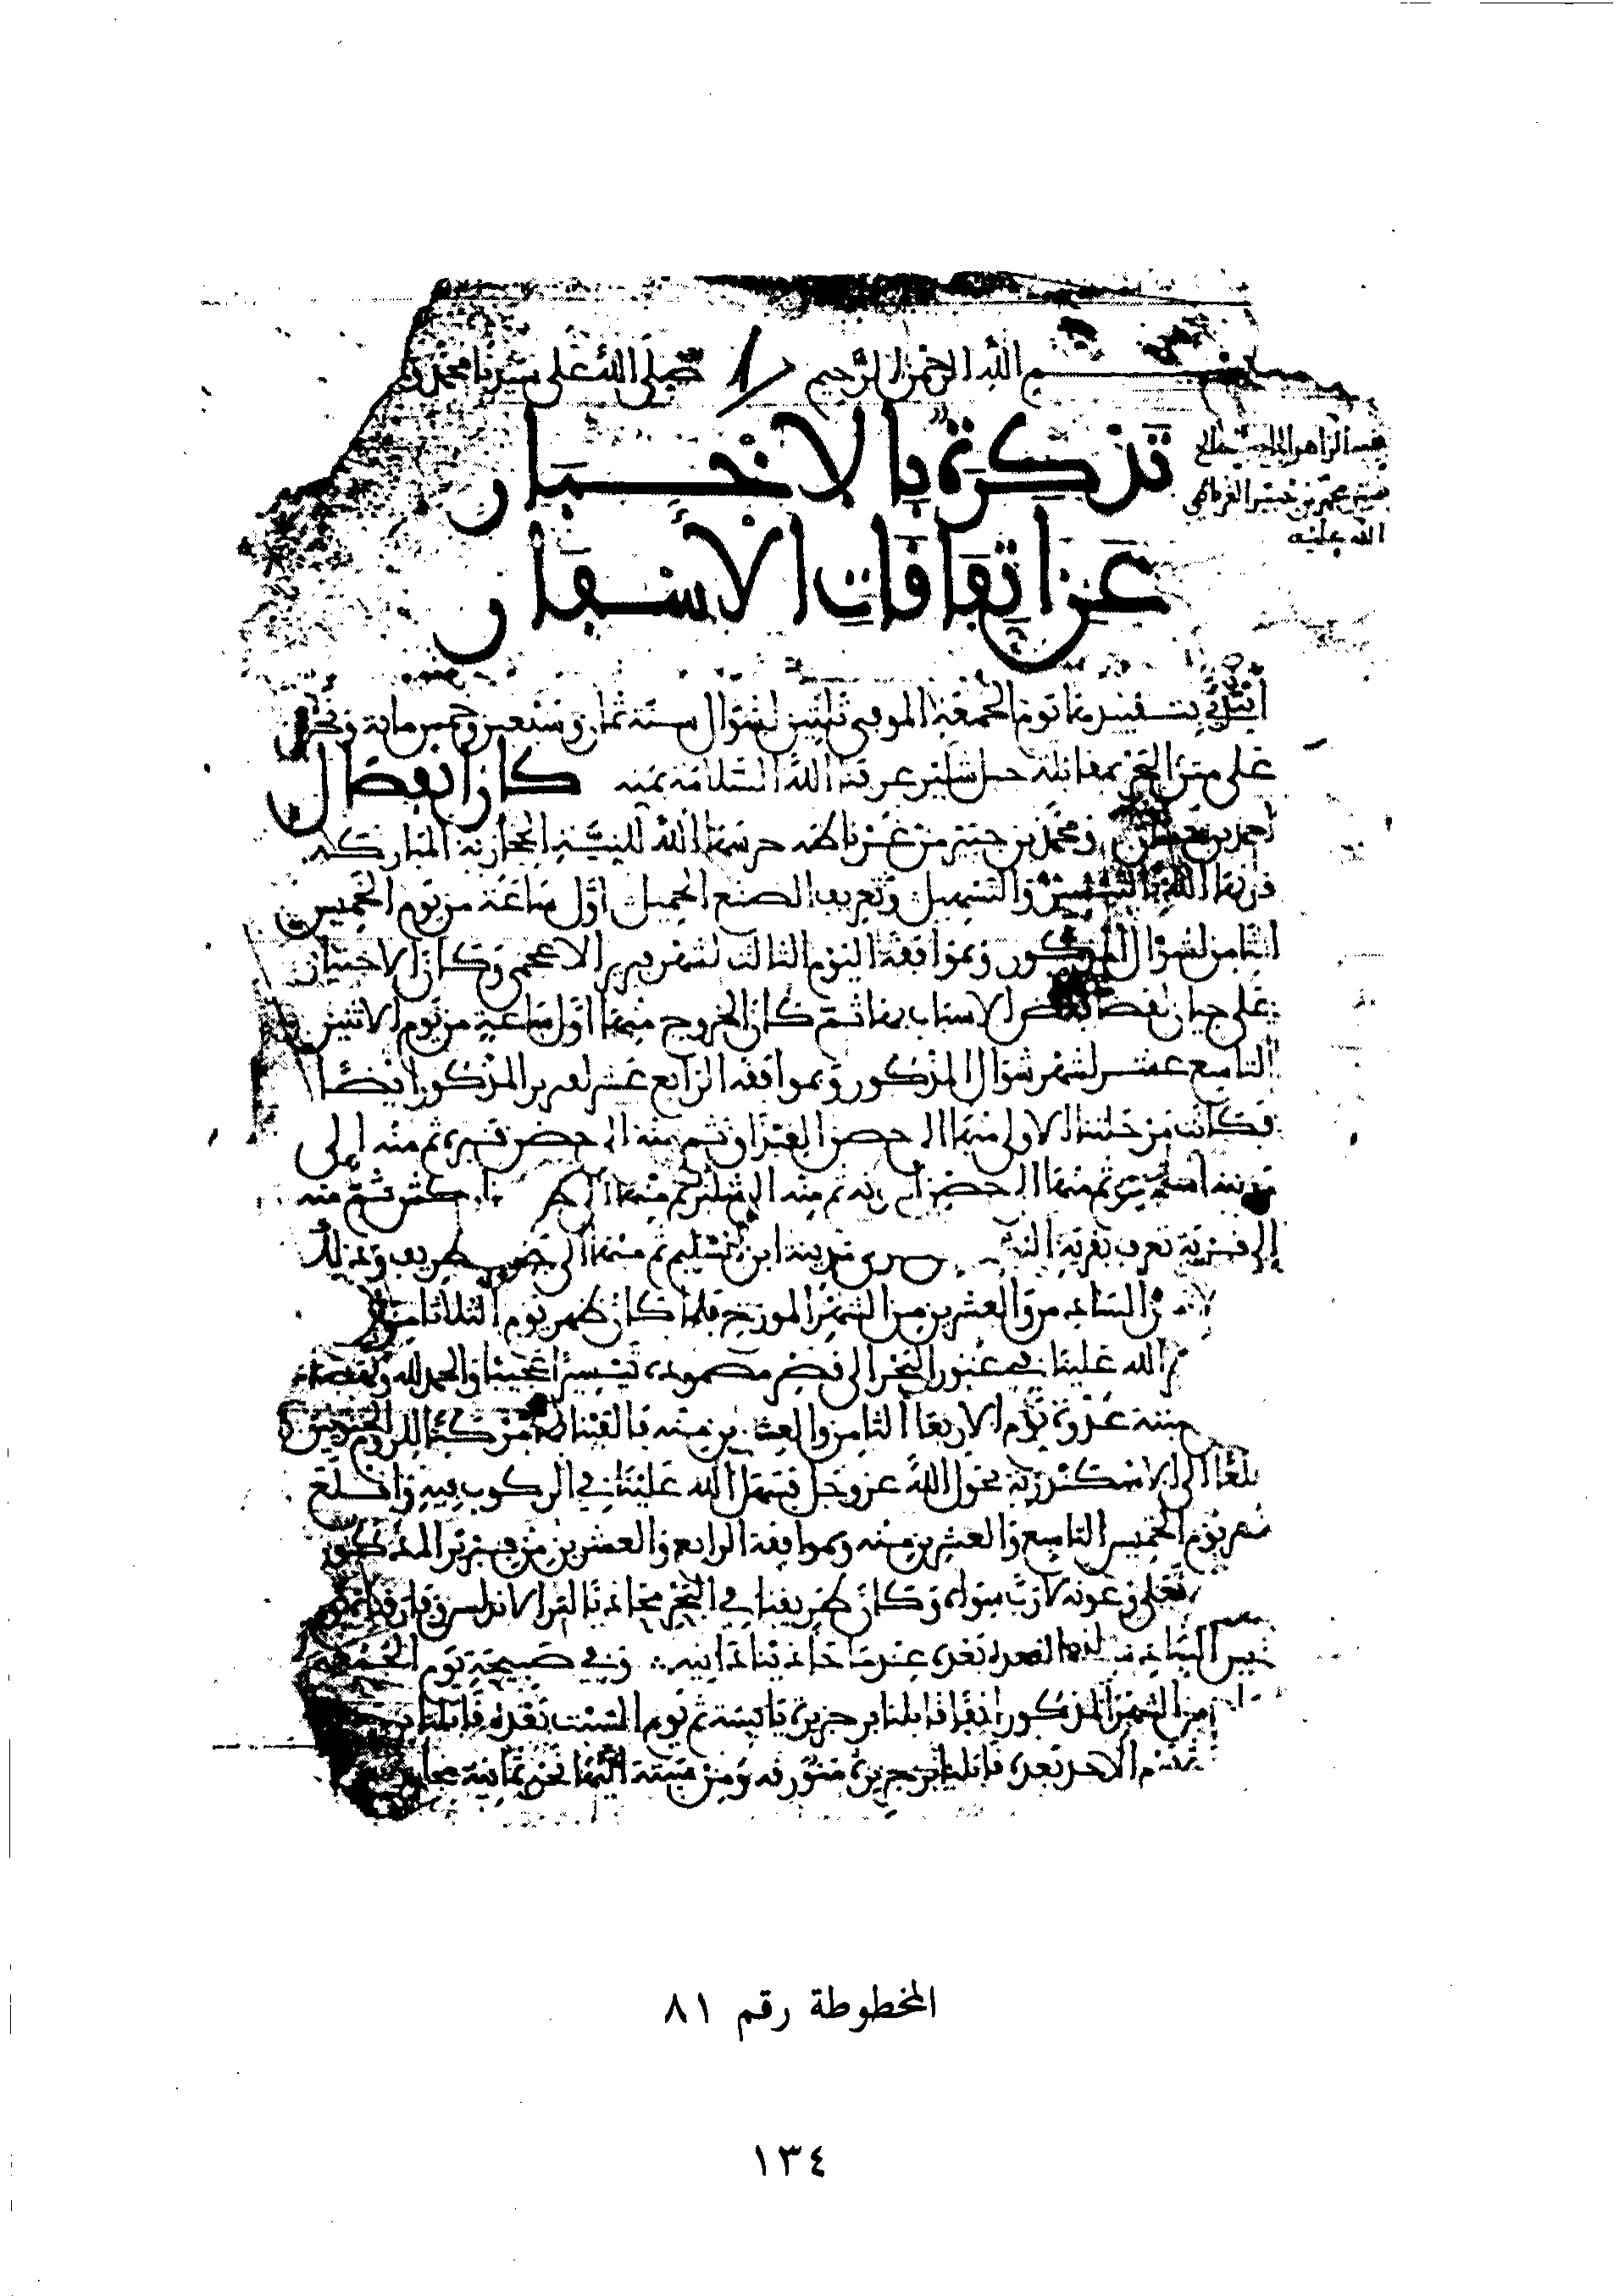 بسم الله الرحمن الرحيم صلى الله على سيدنا محمد
تذكرة بالاخبار
عن اتفاقات الأسفار
ابتدئ بتقييدها يوم الجمعة الموفي ثلثين لشوال سنة ثمان وسبعين وخمس ماية
على متن البحر بمقابلة جبل شلير عرفنا الله السلامة بمنه كان انفصال
احمد بن حسان ومحمد بن جبير من غرناطة حرسها الله للنية الحجازية المباركة
قرنها الله بالتيسير والتسهيل وتعريف الصنع الجميل اول ساعة من يوم الخميس
الثامن لشوال المذكور وبموافقة اليوم الثالث لشهر فبرير الاعجمي وكان الاجتياز
على جيان لقضا بعض الاسباب بها ثم كان الخروج منها اول ساعة من يوم الاثنين
التاسع عشر لشهر شوال المذكور وبموافقة الرابع عشر لفبرير المذكور ايضا
فكانت مرحلتنا الاولى منها الى حصن القبذاق ثم منه الى حصن قبرة ثم منه إلى
مدينة استجة ثم منها الى حصن ثم منه الى شلبر ثم منها الى اركش ثم منه
إلى قرية تعرف بقرية مدينة ابن السليم ثم منها الى جزيرة طريف وذلك
الاثنين السادس والعشرين من الشهر المورخ فلما كان ظهر يوم الثلاثا من
الله علينا في عبور البحر الى قصر مصمودة تيسيرا عجيبا والحمد لله ونهضنا
سبتة غدوة يوم الاربعا الثامن والعشرين منه فالفينا بها مركبا للروم الجنويين
مقلعا الى الاسكندرية بحول الله عز وجل فسهل الله علينا في الركوب فيه واقلع
ظهر يوم الخميس التاسع والعشرين منه وبموافقة الرابع والعشرين من فبرير المذكور
تعلى وعونه لا رب سواه وكان طريقنا في البحر محاذيا لبر الاندلس وفارقناه يوم
الخميس السادس لذي القعدة بعده عندما حاذينا دانية وفي صبيحة يوم الجمعة
من الشهر المذكور انفا قابلنا بر جزيرة يابسة ثم يوم السبت بعده قابلنا
ثم يوم الاحد بعده قابلنا بر جزيرة منورقة ومن سبتة اليها نحو ثمانية مجار
المخطوطة رقم ٨١
١٣٤